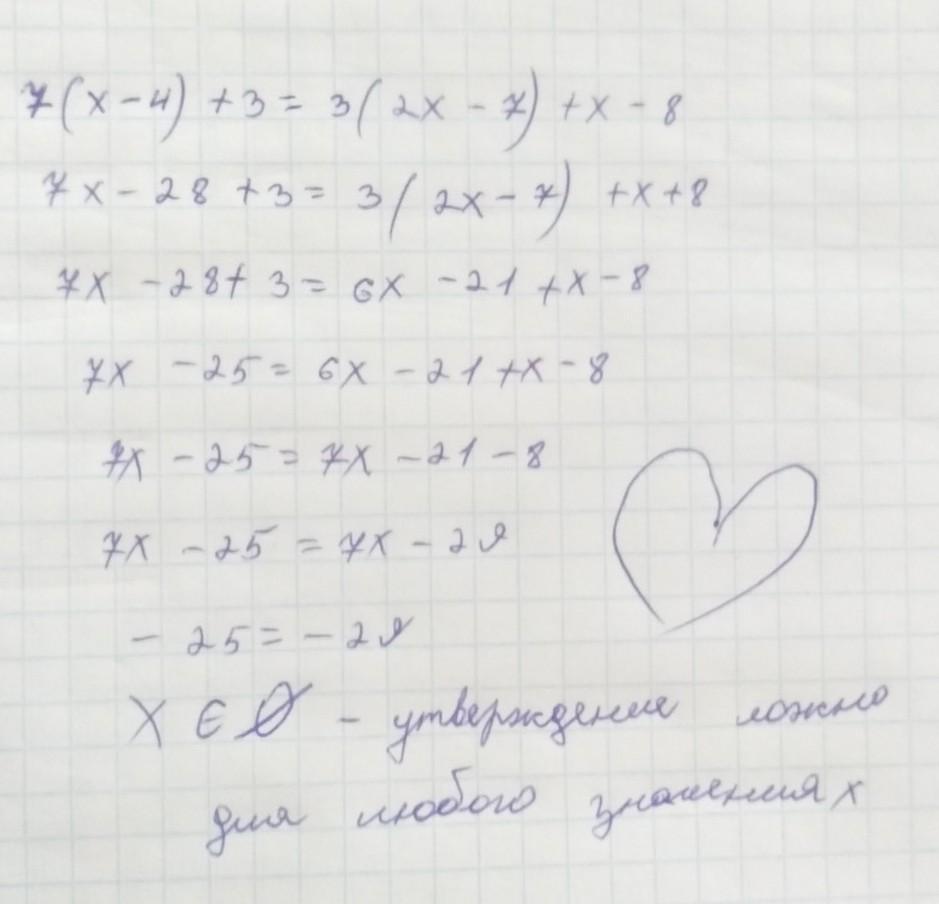 7(x-4) +3 = 3(2x - 7) +x - 8
7x - 28 +3 = 3(2x - 7) +x+8
7x -28+ 3 = 6x -21 +x-8
7x -25 = 6x -21 +x-8
7x -25 = 7x -21-8
7x -25 = 7x - 29
- 25 = -29
X ∈ Ø - утверждение ложно
для любого значения x